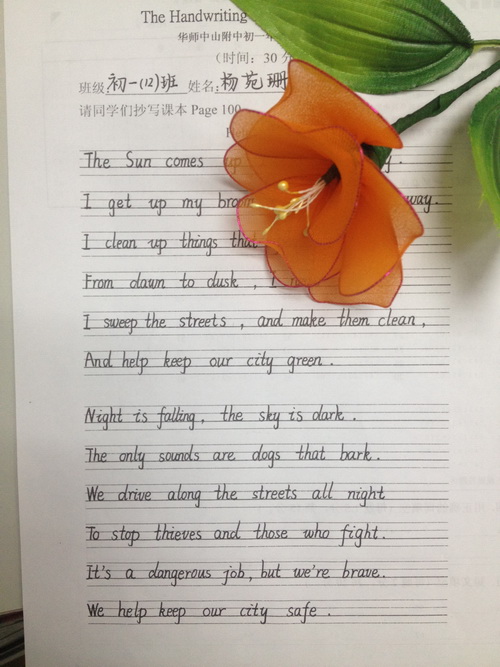 The Handwriting
华师中山附中初一年
(时间：30 分
班级 初一(12)班 姓名：杨苑珊
请同学们抄写课本 Page 100
The Sun comes up
I get up my broom way.
I clean up things that
From dawn to dusk , I
I sweep the streets , and make them clean ,
And help keep our city green .
Night is falling , the sky is dark .
The only sounds are dogs that bark .
We drive along the streets all night
To stop thieves and those who fight .
It's a dangerous job , but we're brave..
We help keep our city safe .